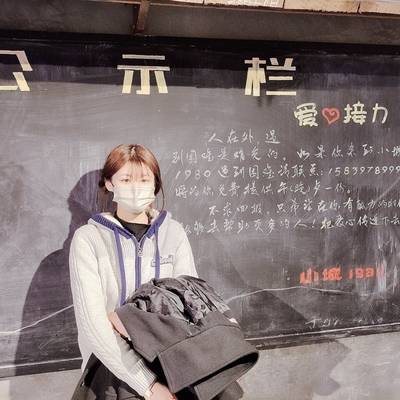 公示栏
爱接力
人在外,遇
到困难是难免的,如果你来到小城
1980遇到困难请联系:1583978999
将为你免费提供午(晚)餐一份。
不求回报,只希望在你有能力的时
能够去帮助更多的人!把爱心传递下去
小城1981